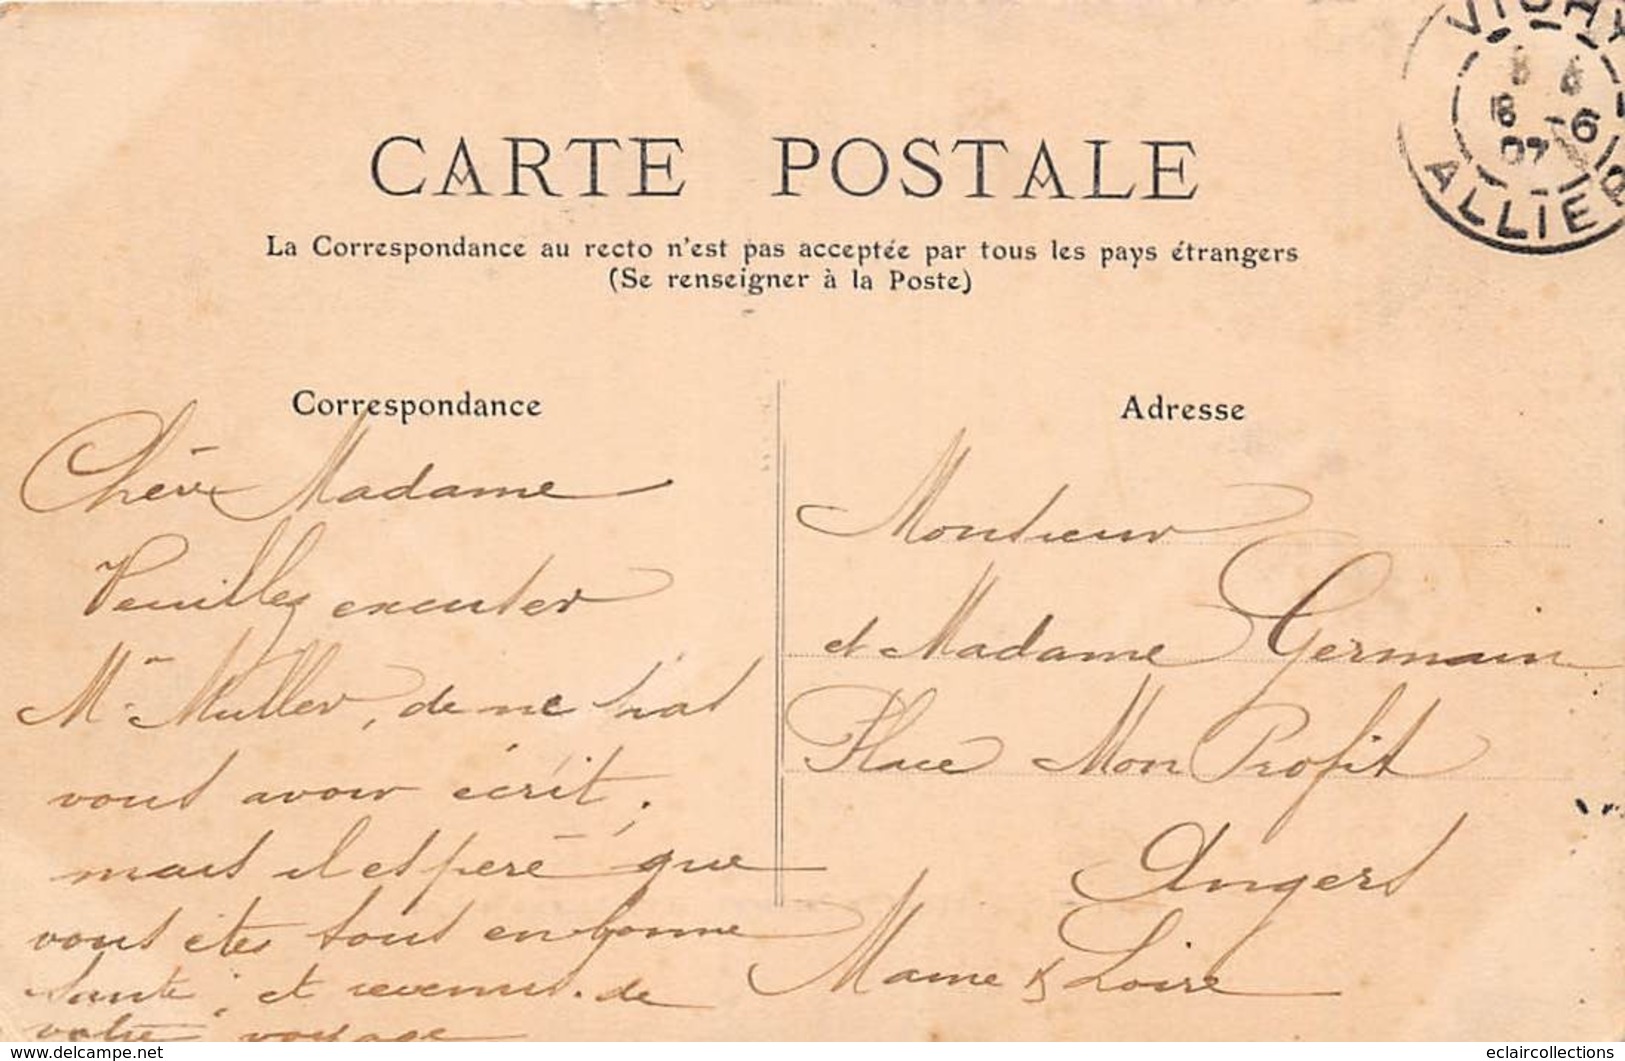 VICHY
8 -6
07
ALLIER
CARTE POSTALE
La Correspondance au recto n'est pas acceptée par tous les pays étrangers
(Se renseigner à la Poste)
Correspondance
Adresse
Chère Madame
Veuillez excuser
Mr Muller, de ne pas
vous avoir écrit,
mais il espère que
vous êtes tous en bonne
santé, et revenus de
votre voyage
Monsieur
et Madame Germain
Place Mon Profit
Angers
Maine & Loire
www.delcampe.net
eclaircollections